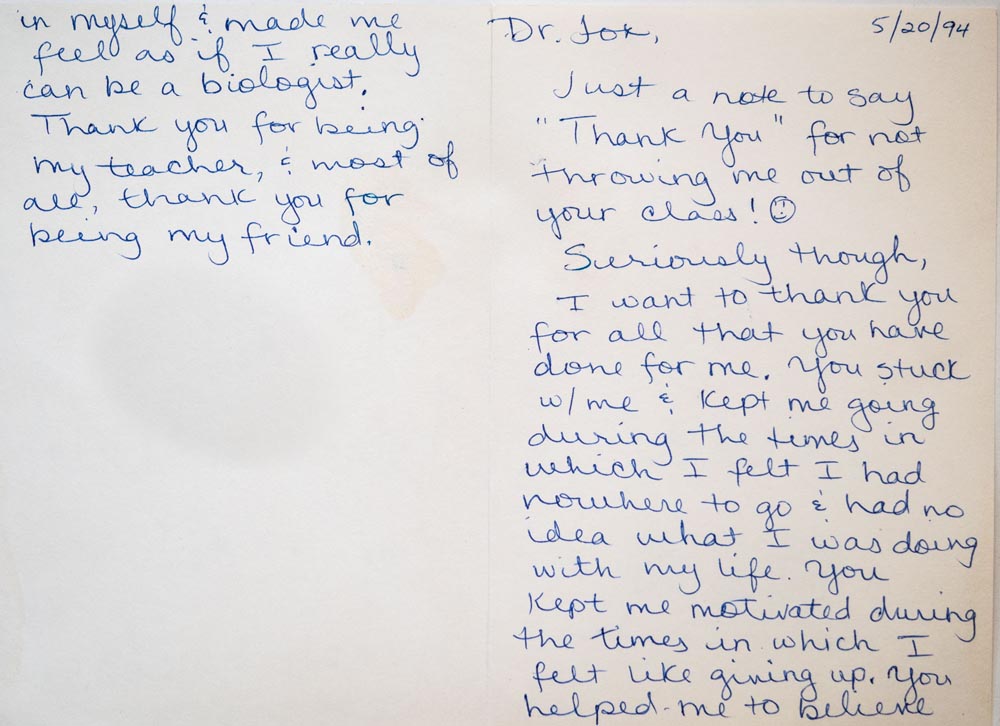 Dr. Fox,
5/20/94
Just a note to say
"Thank You" for not
throwing me out of
your class! ☺
Seriously though,
I want to thank you
for all that you have
done for me. You stuck
w/me & kept me going
during the times in
which I felt I had
nowhere to go & had no
idea what I was doing
with my life. You
kept me motivated during
the times in which I
felt like giving up. You
helped me to believe
in myself & made me
feel as if I really
can be a biologist.
Thank you for being
my teacher, & most of
all, thank you for
being my friend.